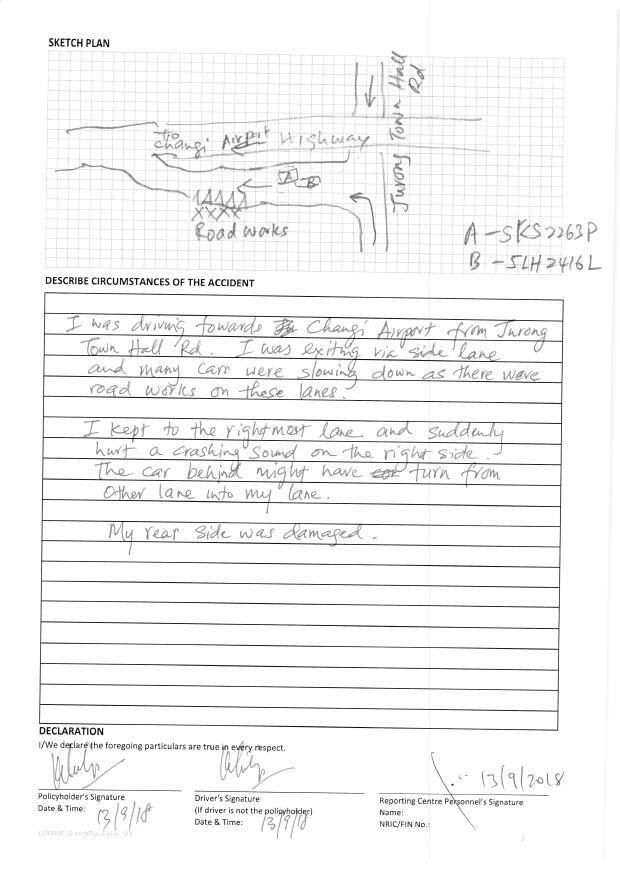 SKETCH PLAN
Jurong Town Hall
Rd
to
Changi Airport Highway
A B
Road works
A - SKS7263P
B - SLH2416L
DESCRIBE CIRCUMSTANCES OF THE ACCIDENT
I was driving towards Changi Airport from Jurong
Town Hall Rd. I was exiting via side lane
and many cars were slowing down as there were
road works on these lanes.
I kept to the rightmost lane and suddenly
hurt a crashing sound on the right side.
The car behind might have turn from
other lane into my lane.
My rear side was damaged.
DECLARATION
I/We declare the foregoing particulars are true in every respect.
13/9/2018
Policyholder's Signature
Date & Time: 13/9/18
Driver's Signature
(If driver is not the policyholder)
Date & Time: 13/9/18
Reporting Centre Personnel's Signature
Name:
NRIC/FIN No.: